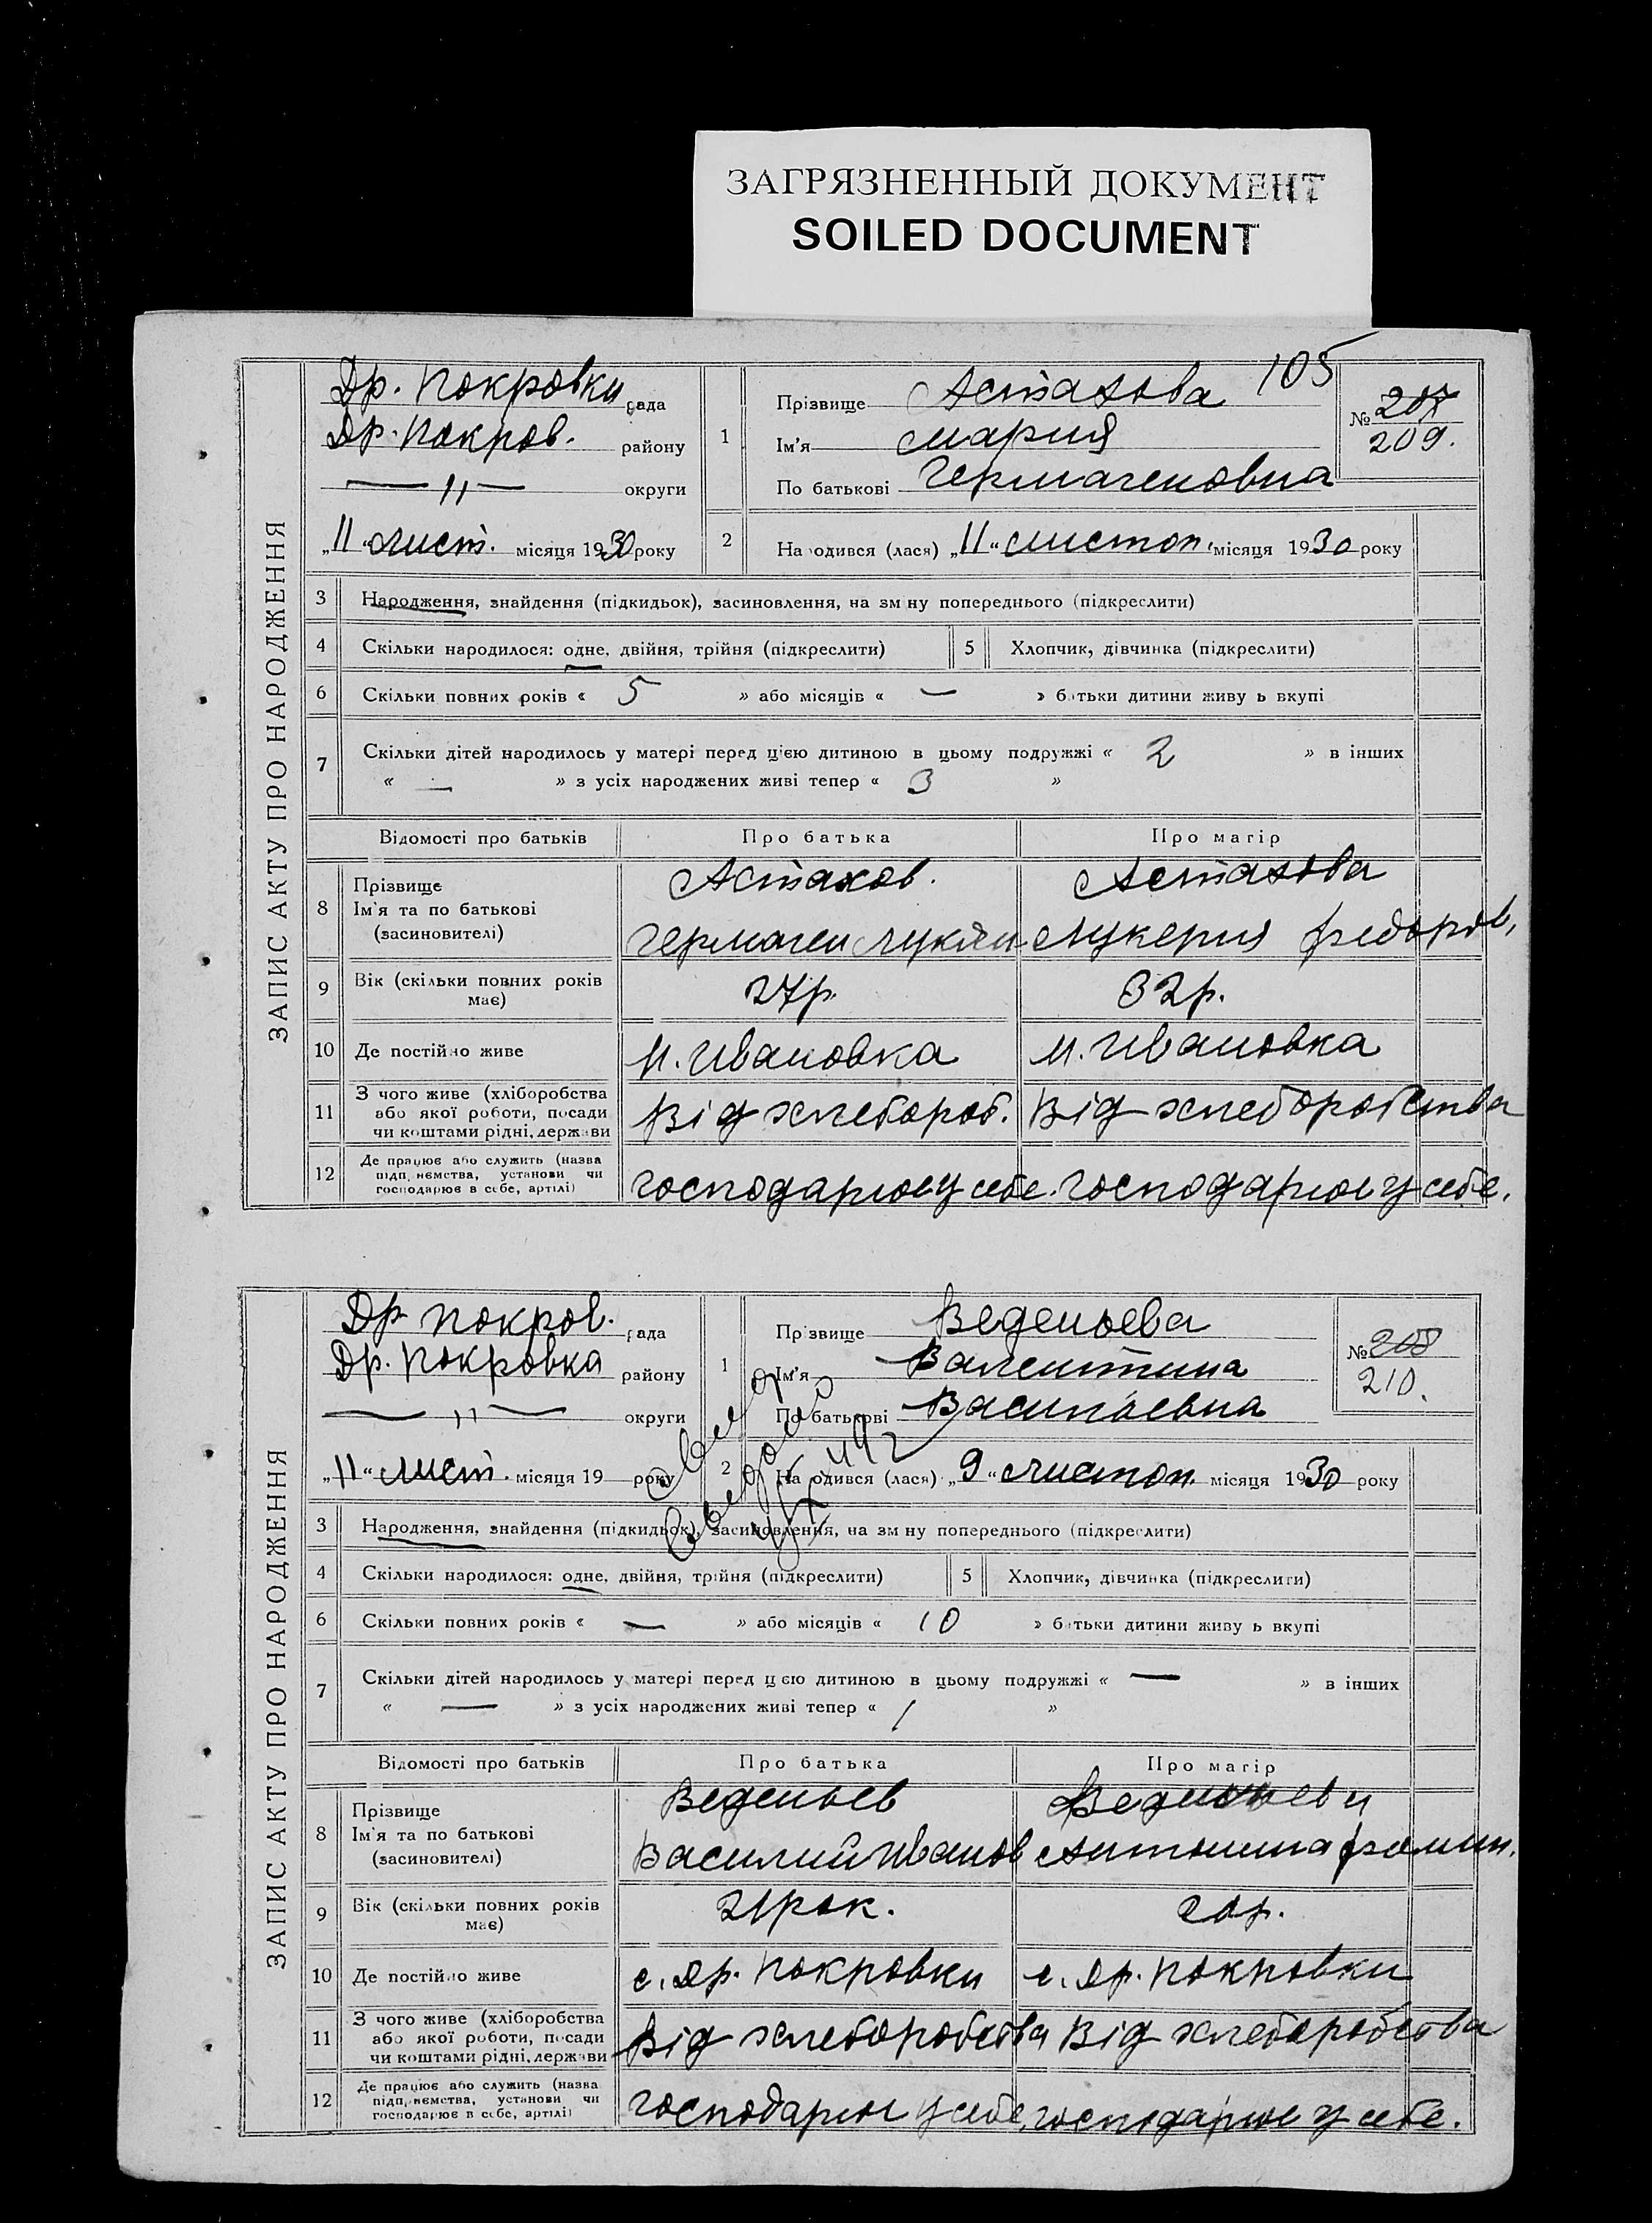 ЗАГРЯЗНЕННЫЙ ДОКУМЕНТ
SOILED DOCUMENT
105
ЗАПИС АКТУ ПРО НАРОДЖЕННЯ
Др. Покровки рада
Др. Покров. району
— 〃 — округи
„11“ лист. місяця 1930 року
1 Прізвище Астахова
Ім'я Мария
По батькові Гермагеновна
№ 207
209.
2 На одився (лася) „11“ листоп. місяця 1930 року
3 Народження, знайдення (підкидьок), засиновлення, на зм ну попереднього (підкреслити)
4 Скільки народилося: одне, двійня, трійня (підкреслити) 5 Хлопчик, дівчинка (підкреслити)
6 Скільки повних років « 5 » або місяців « — » б тьки дитини живу ь вкупі
7 Скільки дітей народилось у матері перед цією дитиною в цьому подружжі « 2 » в інших
« — » з усіх народжених живі тепер « 3 »
Відомості про батьків Про батька Про матір
8 Прізвище Астахов. Астахова
Ім'я та по батькові
(засновителі) Гермаген Лукян Лукерия Федоров,
9 Вік (скільки повних років
має) 27р. 32р.
10 Де постійно живе Н. Ивановка Н. Ивановка
11 З чого живе (хліборобства
або якої роботи, посади
чи коштами рідні, держави Від хлебороб. Від хлеборобства
12 Де працює або служить (назва
підп. ємства, установи чи
господарює в себе, артілі) господарює у себе. господарює у себе.
ЗАПИС АКТУ ПРО НАРОДЖЕННЯ
Др Покров. рада
Др. Покровка району
— 〃 — округи
„11“ лист. місяця 19 року
1 Пр звище Веденьева
Ім'я Валентина
По батькові Васильевна
№ 208
210.
2 На одився (лася) „9“ листоп. місяця 1930 року
3 Народження, знайдення (підкидьок), засиновлення, на зм ну попереднього (підкреслити)
4 Скільки народилося: одне, двійня, трійня (підкреслити) 5 Хлопчик, дівчинка (підкреслити)
6 Скільки повних років « — » або місяців « 10 » б тьки дитини живу ь вкупі
7 Скільки дітей народилось у матері перед цією дитиною в цьому подружжі « — » в інших
« — » з усіх народжених живі тепер « 1 »
Відомості про батьків Про батька Про матір
8 Прізвище Веденьев Веденьеви
Ім'я та по батькові
(засновителі) Василий Иванов Антонина Фомин.
9 Вік (скільки повних років
має) 21рок. 20р.
10 Де постійно живе с. Др. Покровки с. Др. Покровки
11 З чого живе (хліборобства
або якої роботи, посади
чи коштами рідні, держави Від хлеборобства Від хлеборобства
12 Де працює або служить (назва
підп. ємства, установи чи
господарює в себе, артілі) господарює у себе, господарює у себе.